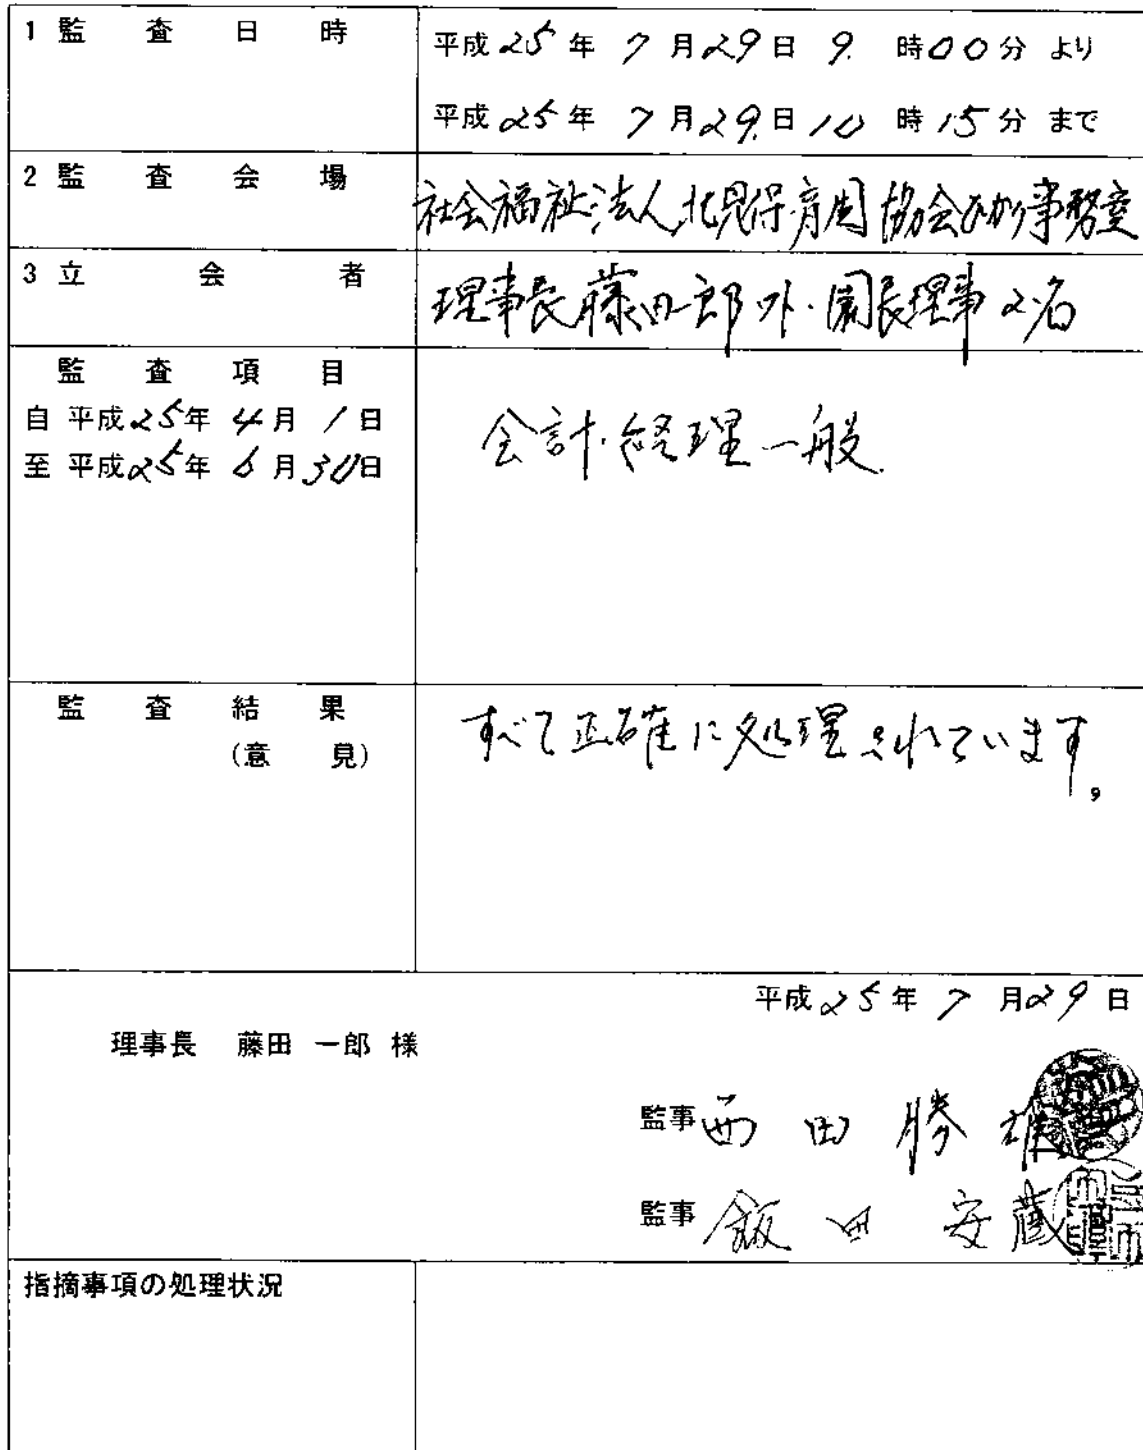 1 監査日時
平成25年7月29日9時00分より
平成25年7月29日10時15分まで
2 監査会場
社会福祉法人北見保育園協会ひかり事務室
3 立会者
理事長藤田一郎外・園長理事2名
監査項目
自 平成25年4月1日
至 平成25年6月30日
会計・経理一般
監査結果
(意見)
すべて正確に処理されています。
平成25年7月29日
理事長 藤田 一郎 様
監事 西田勝雄
監事 飯田安蔵
指摘事項の処理状況